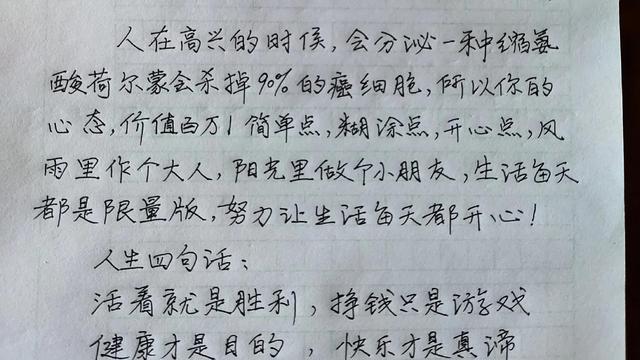 人在高兴的时候，会分泌一种缩氨
酸荷尔蒙会杀掉90%的癌细胞，所以你的
心态，价值百万！简单点，糊涂点，开心点，风
雨里作个大人，阳光里做个小朋友，生活每天
都是限量版，努力让生活每天都开心！
人生四句话：
活着就是胜利，挣钱只是游戏
健康才是目的，快乐才是真谛